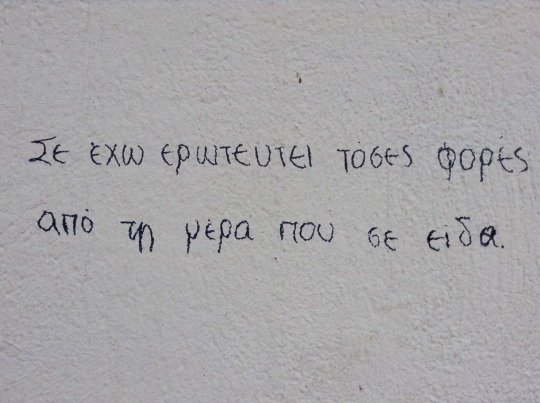 Σε έχω ερωτευτεί τόσες φορές
από τη μέρα που σε είδα.